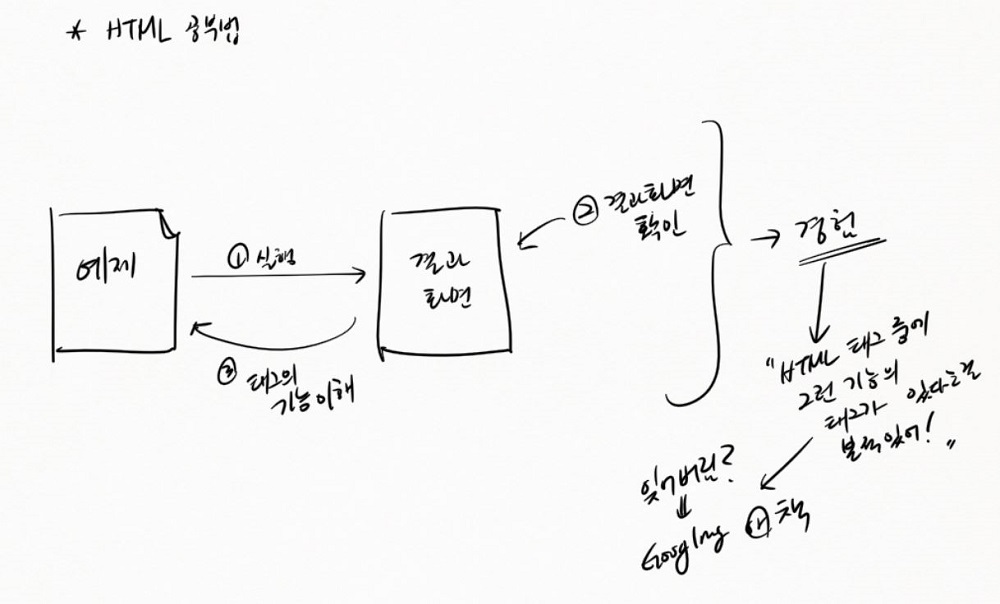 * HTML 공부법
예제
① 실행
결과
화면
② 결과화면
확인
③ 태그의
기능 이해
→ 경험
"HTML 태그 중에
그런 기능의
태그가 있다는걸
본적있어!"
잊어버림?
Googling
책